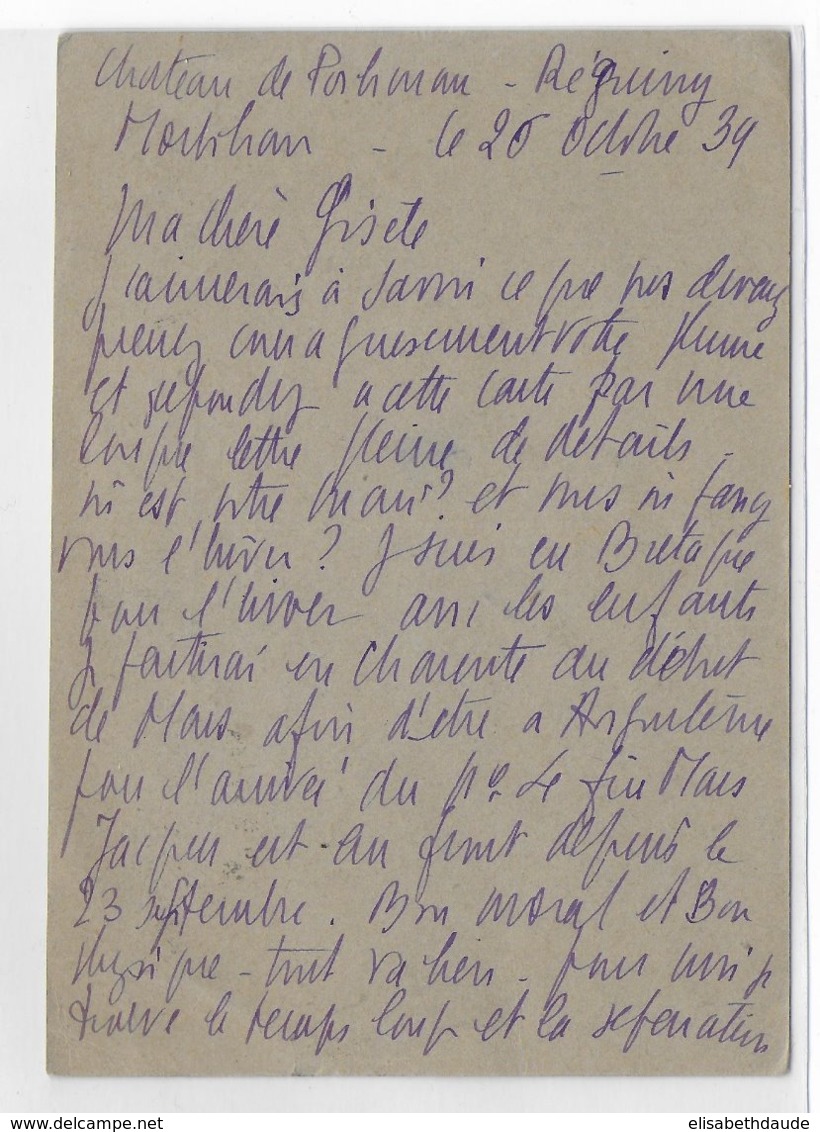 Chateau de Porhman - Réguiny
Morbihan - le 26 octobre 39
Ma chère Gisèle
J'aimerais à savoir ce que vous devenez
prenez courageusement votre plume
et repondez a cette carte par une
longue lettre pleine de details -
où est votre mari? et vous où passez
vous l'hiver? Je suis en Bretagne
pour l'hiver avec les enfants
Je partirai en Charente au début
de Mars afin d'etre a Angoulême
pour l'arrivée du No 4 fin Mars
Jacques est au front depuis le
23 septembre. Bon moral et Bon
physique - tout va bien - pour moi je
trouve le temps long et la separation
delcampe.net
elisabethdaude